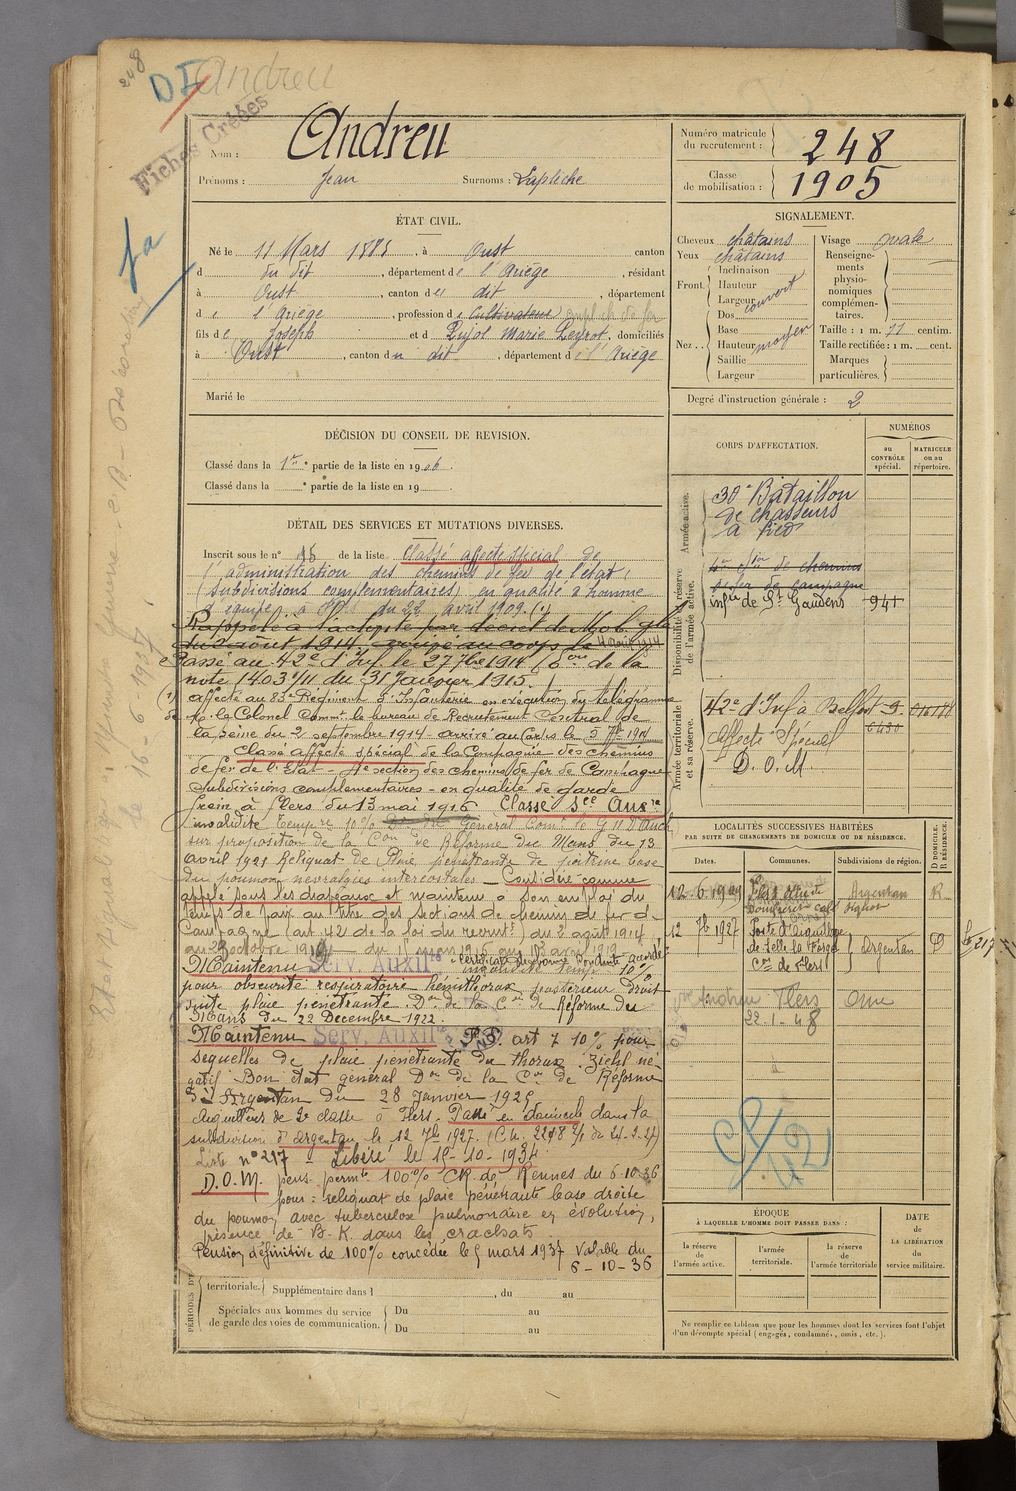 248
DI Andreu
Fiches Créées
Nom : Andreu
Prénoms : Jean Surnoms : Laplèche
Numéro matricule du recrutement : 248
Classe de mobilisation : 1905
ÉTAT CIVIL.
Né le 11 Mars 1885, à Oust canton
d du dit, département de l'Ariège, résidant
à Oust, canton du dit, département
d e l'Ariège, profession de Cultivateur
fils de Joseph et de Pujol Marie Peyrot, domiciliés
à Oust, canton du dit, département de l'Ariège
Marié le
SIGNALEMENT.
Cheveux châtains
Yeux châtains
Front Inclinaison
Hauteur
Largeur couvert
Nez Dos
Base
Hauteur moyen
Saillie
Largeur
Visage ovale
Renseignements physionomiques complémentaires.
Taille : 1 m. 77 centim.
Taille rectifiée : 1 m. cent.
Marques particulières.
Degré d'instruction générale : 2
DÉCISION DU CONSEIL DE REVISION.
Classé dans la 1re partie de la liste en 1906.
Classé dans la partie de la liste en 19
DÉTAIL DES SERVICES ET MUTATIONS DIVERSES.
Inscrit sous le n° 15 de la liste Classé affecté spécial de
l'administration des chemins de fer de l'état
(subdivisions complémentaires) en qualité d'homme
d'équipe à du 22 avril 1909. (1)
Rappelé à l'activité par décret de Mob. gle
du 2 août 1914, arrivé au corps le
Passé au 42e d'Inf. le 27 7bre 1914 de la
note 1403 du 31 janvier 1915.
(1) affecté au 83e Régiment d'Infanterie en exécution du télégramme
de M. le Colonel Commt le bureau de Recrutement Central de
la Seine du 2 septembre 1914 - arrivé au Corps le 5 7bre 1914
Classé affecté spécial de la Compagnie des chemins
de fer de l'Etat - 4e section des chemins de fer de Campagne
Subdivisions complémentaires - en qualité de garde
frein à Flers du 13 mai 1916 Classé Sce Auxre
invalidité tempre 10% Don du Général Comt le G II D'Auch
sur proposition de la Con de Réforme du Mans du 13
avril 1921 Reliquat de Plaie pénétrante de poitrine base
du poumon nevralgies intercostales - Considéré comme
appelé sous les drapeaux et maintenu à son emploi du
temps de paix au titre des sections de chemin de fer de
Campagne (art. 42 de la loi du recrutt) du 2 août 1914
au octobre 1914 du 11 mars 1916 au 18 avril 1919
Certificat de bonne Conduite accordé
Maintenu Serv. Auxilre invalidité temp. 10%
pour obscurité respiratoire hémithorax postérieur droit
suite plaie pénétrante Don de la Con de Réforme du
Mans du 22 Décembre 1922.
Maintenu Serv. Auxilre art 7 10% pour
séquelles de plaie pénétrante du thorax Ziehl né-
gatif Bon état général Don de la Con de Réforme
d'Argentan du 28 Janvier 1925
Aiguilleur de 2e classe à Flers. Passé en domicile dans la
subdivision d'Argentan le 12 7b 1927.
Liste n° 217 - Libéré le 15-10-1934
D.O.M. pens. permte 100% CR de Rennes du 6-10-36
pour : reliquat de plaie pénétrante base droite
du poumon avec tuberculose pulmonaire en évolution,
présence de B.K. dans les crachats
Pension définitive de 100% concédée le 5 mars 1937 Valable du
6-10-36
CORPS D'AFFECTATION.
NUMÉROS
au CONTRÔLE spécial.
MATRICULE ou au répertoire.
Armée active.
30e Bataillon
de chasseurs
à Pied
Disponibilité et réserve de l'armée active.
de chemins
de fer de campagne
infie de St Gaudens 941
Armée territoriale et sa réserve.
42e d'Inf à Belfort
Affecté Spécial
D.O.M.
LOCALITÉS SUCCESSIVES HABITÉES
PAR SUITE DE CHANGEMENTS DE DOMICILE OU DE RÉSIDENCE.
Dates. Communes. Subdivisions de région. D DOMICILE. R RÉSIDENCE.
12-6-1909 Flers Argentan R
12 7b 1927 Poste d'aiguilleur
de Celle la Forge
Cne de Flers Argentan D
217
Flers Orne
22-1-48
ÉPOQUE
À LAQUELLE L'HOMME DOIT PASSER DANS :
la réserve de l'armée active.
l'armée territoriale.
la réserve de l'armée territoriale
DATE de LA LIBÉRATION du service militaire.
PÉRIODES D'
territoriale. Supplémentaire dans l , du au
Spéciales aux hommes du service
de garde des voies de communication.
Du au
Du au
Ne remplir ce tableau que pour les hommes dont les services font l'objet
d'un décompte spécial (engagés, condamnés, omis, etc.).
le 16-6-1937